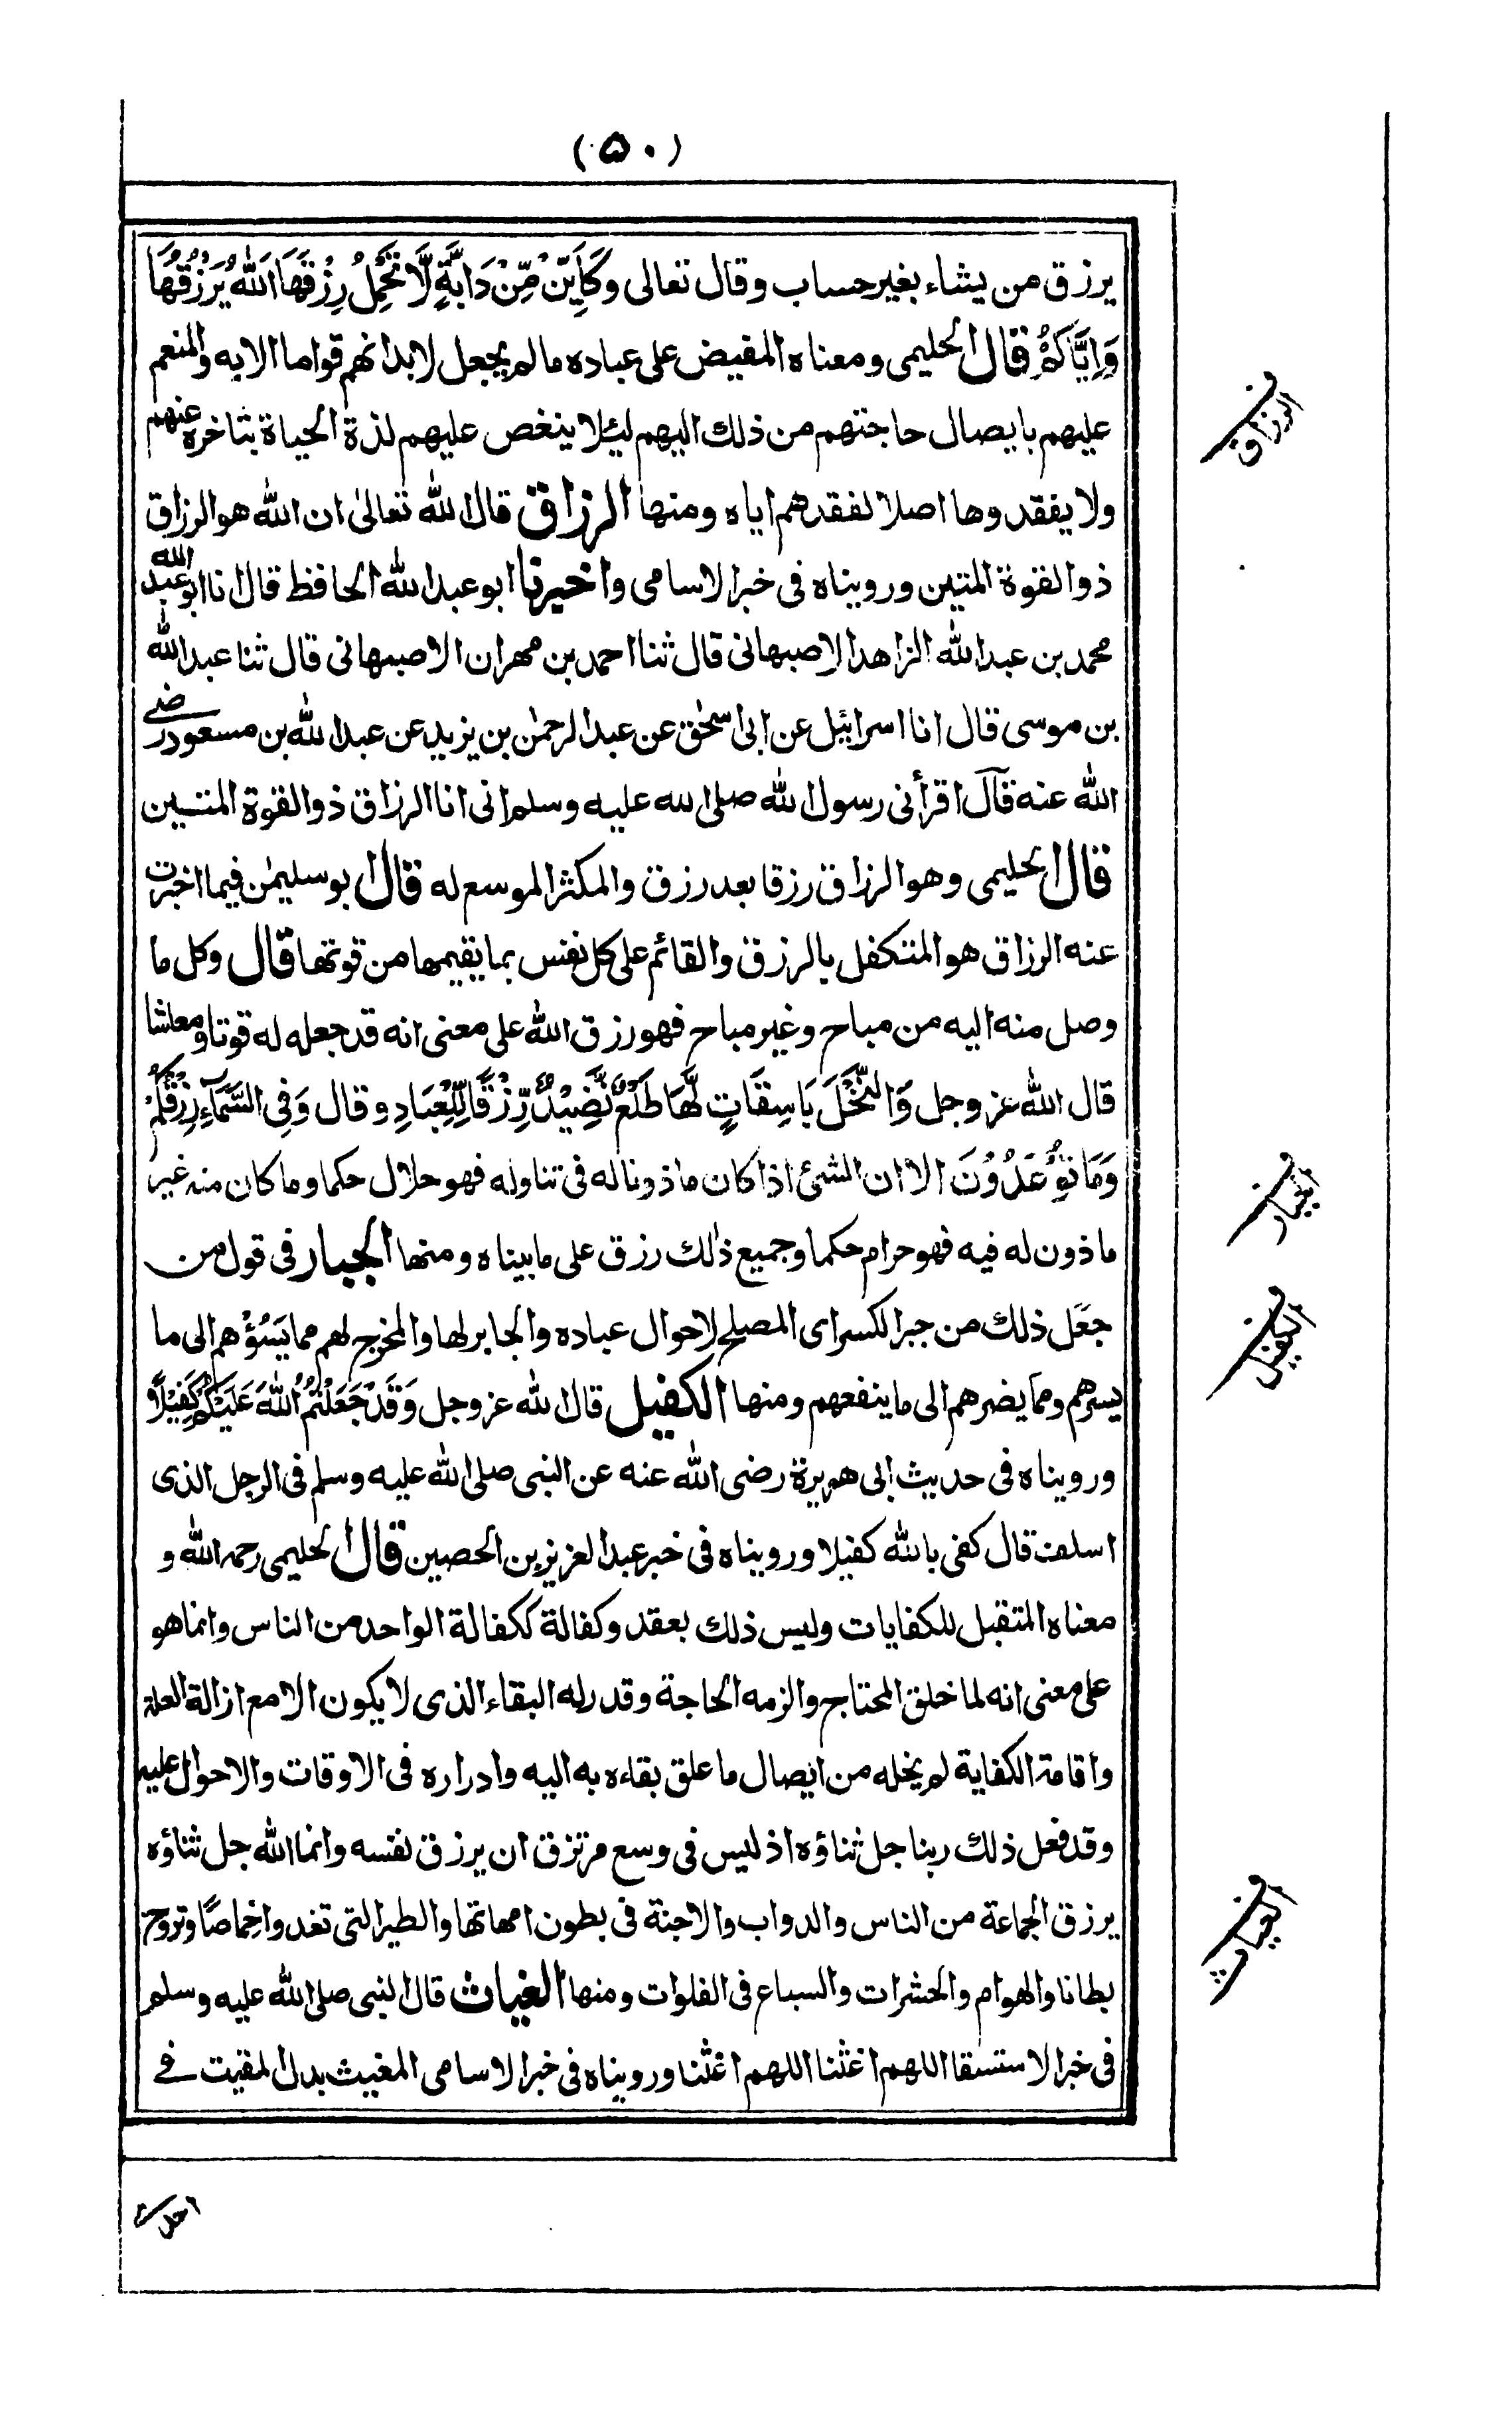 (٥٠)
يرزق من يشاء بغير حساب وقال تعالى وَكَاَيِّنْ مِّنْ دَابَّةٍ لَّا تَحْمِلُ رِزْقَهَا اَللّٰهُ يَرْزُقُهَا
وَاِيَّاكُمْ قال الحليمى ومعناه المفيض على عباده ما لم يجعل لابدانهم قواما الا به والمنعم
عليهم بايصال حاجتهم من ذلك اليهم لئلا ينغص عليهم لذة الحياة بتاخره عنهم
ولا يفقدوها اصلا لفقدهم اياه ومنها الرزاق قال الله تعالىٰ ان الله هو الرزاق
ذو القوة المتين وروينا ه فى خبر الاسامى واخبرنا ابو عبد الله الحافظ قال نا ابو عبد الله
محمد بن عبد الله الزاهد الاصبهانى قال ثنا احمد بن مهران الاصبهانى قال ثنا عبد الله
بن موسى قال انا اسرائيل عن ابى اسحٰق عن عبد الرحمٰن بن يزيد عن عبد الله بن مسعود رضى
الله عنه قال اقرأنى رسول الله صلى الله عليه وسلم انى انا الرزاق ذو القوة المتين
قال الحليمى وهو الرزاق رزقا بعد رزق والمكثر الموسع له قال ابو سليمٰن فيما اخبرت
عنه الرزاق هو المتكفل بالرزق والقائم على كل نفس بما يقيمها من قوتها قال وكل ما
وصل منه اليه من مباح وغير مباح فهو رزق الله على معنى انه قد جعله له قوتا ومعاشا
قال الله عز وجل وَالنَّخْلَ بَاسِقَاتٍ لَّهَا طَلْعٌ نَّضِيْدٌ رِّزْقًا لِّلْعِبَادِ وقال وَفِى السَّمَاءِ رِزْقُكُمْ
وَمَا تُوْعَدُوْنَ الا ان الشئ اذا كان ماذونا له فى تناوله فهو حلال حكما وما كان منه غير
ماذون له فيه فهو حرام حكما وجميع ذٰلك رزق على ما بيناه ومنها الجبار فى قول من
جعَل ذلك من جبر الكسر اى المصلح لاحوال عباده والجابر لها والمخرج لهم مما يَسُؤْهم الى ما
يسرهم ومما يضرهم الى ما ينفعهم ومنها الكفيل قال الله عز وجل وَقَدْ جَعَلْتُمُ اللّٰهَ عَلَيْكُمْ كَفِيْلًا
وروينا ه فى حديث ابى هريرة رضى الله عنه عن النبى صلى الله عليه وسلم فى الرجل الذى
اسلفت قال كفى بالله كفيلا وروينا ه فى خبر عبد العزيز بن الحصين قال الحليمى رحمه الله و
معناه المتقبل للكفايات وليس ذلك بعقد وكفالة ككفالة الواحد من الناس وانما هو
على معنى انه لما خلق المحتاج والزمه الحاجة وقدر له البقاء الذى لا يكون الا مع ازالة العلة
واقامة الكفاية لم يخله من ايصال ما علق بقاءه به اليه وادراره فى الاوقات والاحوال عليه
وقد فعل ذلك ربنا جل ثناؤه اذ ليس فى وسع مرتزق ان يرزق نفسه وانما الله جل ثناؤه
يرزق الجماعة من الناس والدواب والاجنة فى بطون امهاتها والطير التى تغدوا خِماصًا وتروح
بطانا والهوام والحشرات والسباع فى الفلوات ومنها الغياث قال النبى صلى الله عليه وسلم
فى خبر الاستسقا اللهم اغثنا اللهم اغثنا وروينا ه فى خبر الاسامى المغيث بدل المقيت فے
الرزاق
الجبار
الكفيل
الغياث